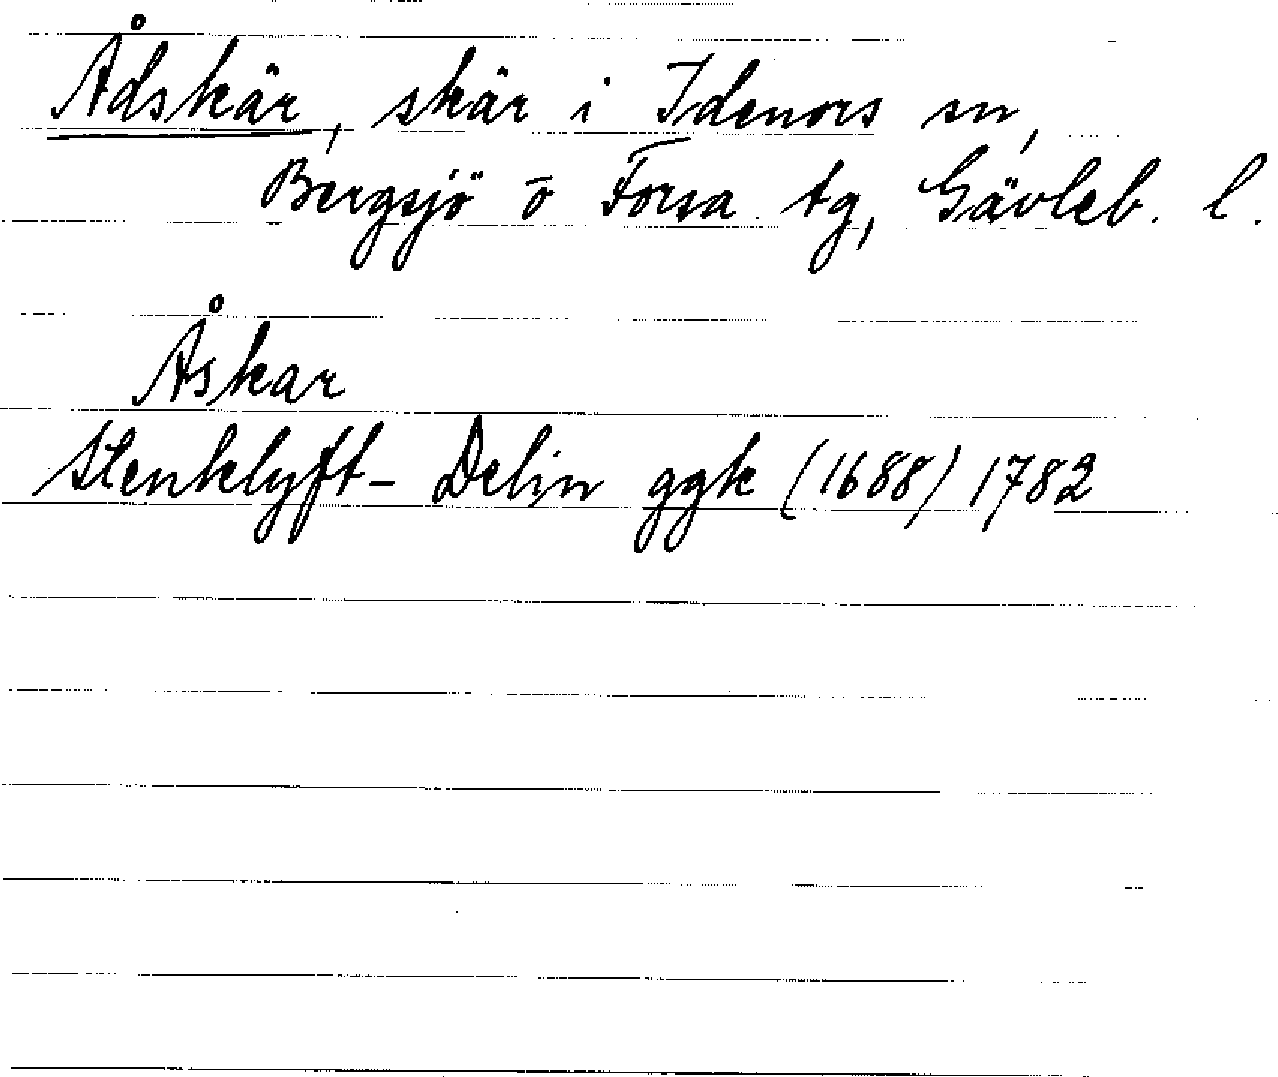 Ådskär, skär i Idenors sn,
Bergsjö o Forsa tg, Gävleb. l.
Åskar
Stenklyft-Delin ggk (1688) 1782